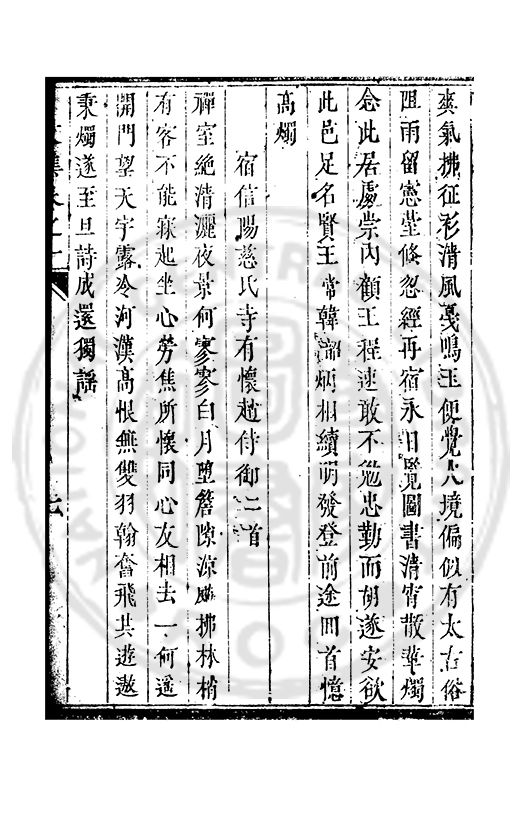 爽氣拂征衫清風戞鳴玉便覺人境偏似有太古俗
阻雨留憲堂倐忽經再宿永日覽圖書清宵散華燭
念此居處崇內顧王程速敢不勉忠勤而胡遂安欲
此邑足名賢王常韓 炳相續明發登前途回首憶
高燭
宿信陽慈氏寺有懷趙侍御二首
禪室絶清灑夜景何寥寥白月墮簷隙涼飈拂林梢
有客不能寐起坐心勞焦所懷同心友相去一何遙
開門望天宇露冷河漢高恨無雙羽翰奮飛共遊遨
秉燭遂至旦詩成還獨謡
集卷之二